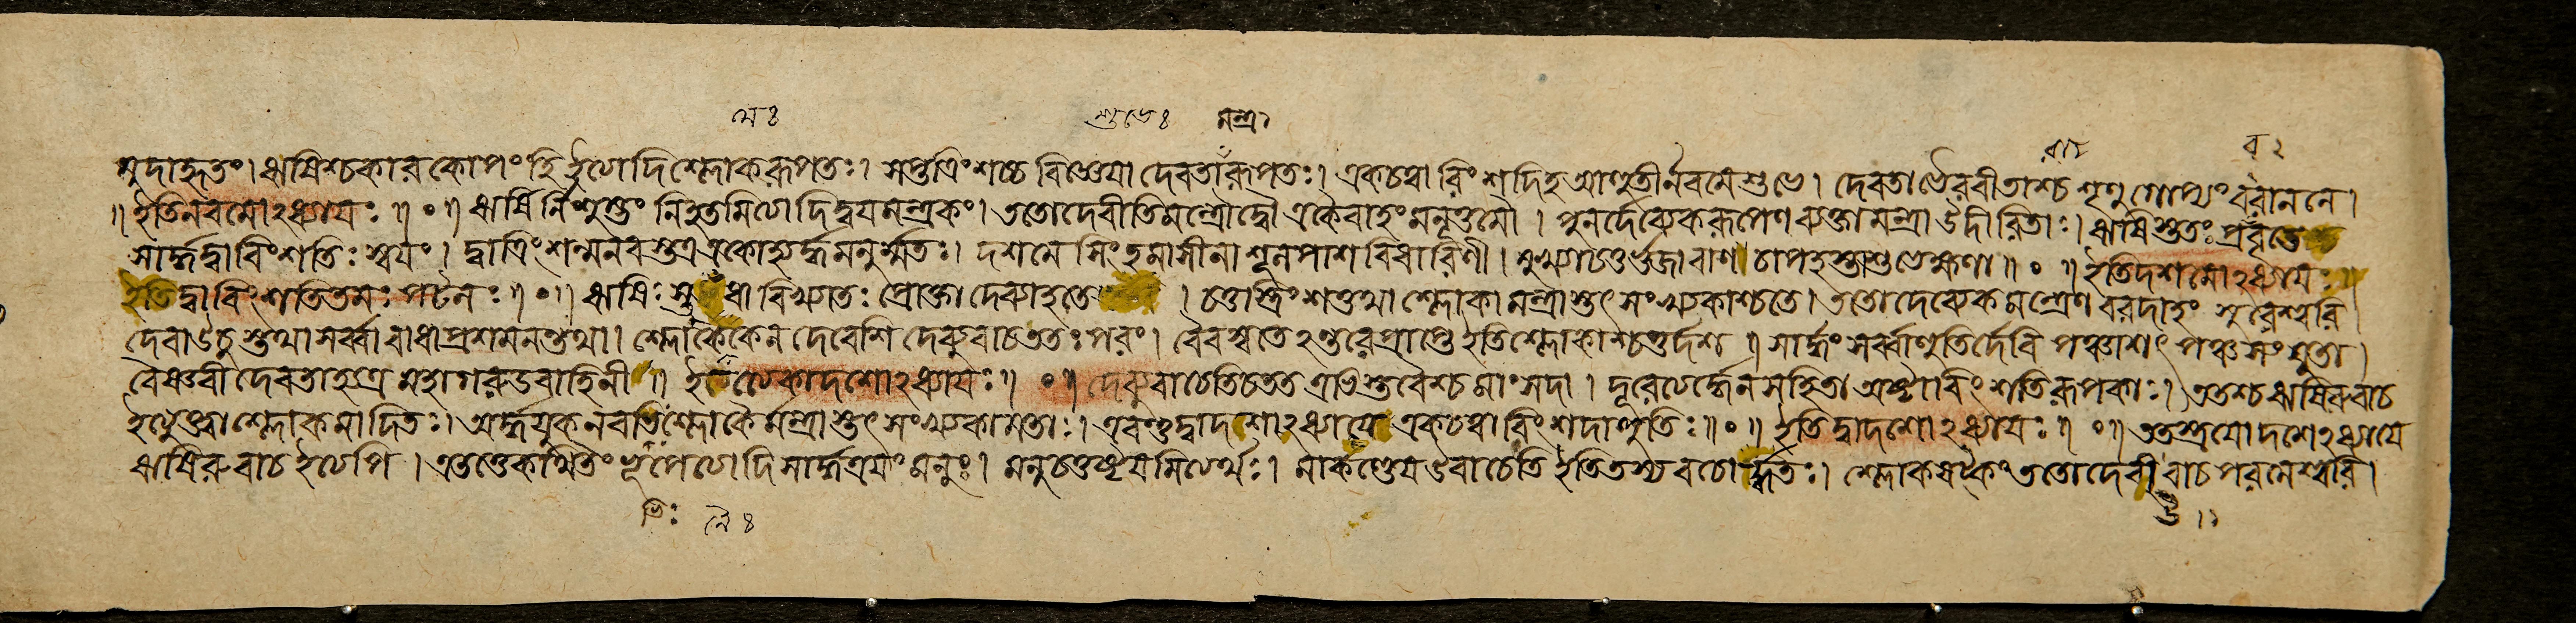 মঃ শুভেঃ মন্ত্র১
রা৮ ব২
মুদাহৃতং। ঋষিশ্চকারকোপং হি ইত্যোদি শ্লোকরূপতঃ। সপ্তত্রিংশচ্চ বিজ্ঞেয়া দেবতারূপতঃ। একচত্বারিংশদিহ আহুতীর্নবমে শুভে। দেবতা ভৈরবী তাশ্চ শৃণু গোপ্যং বরাননে।
॥ ইতি নবমোঽধ্যায়ঃ ॥ ॰ ॥ ঋষির্নিশুম্ভং নিহতমিত্যোদিদ্বয়মন্ত্রকং। ততো দেবীতি মন্ত্রো দ্বৌ একৈবাহং মনূত্তমৌ। পুনর্দেব্যেকরূপেণ ব্যক্তা মন্ত্রা উদীরিতাঃ। ঋষিস্তুতঃ প্রববৃতে
সার্দ্ধদ্বাবিংশতিঃ স্বয়ং। দ্বাত্রিংশন্মনবস্তত্র একোঽর্দ্ধমনুর্ম্মতঃ। দশমে সিংহমাসীনা শূলপাশবিধারিণী। মুখ্যা চতুর্ভুজা বাণচাপহস্তা শুভেক্ষণা ॥ ॰ ॥ ইতি দশমোঽধ্যায়ঃ ॥
ইতি দ্বাবিংশতিতমঃ পটলঃ ॥ ॰ ॥ ঋষিঃ সুমেধা বিখ্যাতঃ প্রোক্তা দেব্যাহতে। চতুস্ত্রিংশত্তথা শ্লোকা মন্ত্রাস্তৎ সংখ্যকাশ্চতে। ততো দেব্যেকমন্ত্রেণ বরদাহং সুরেশ্বরি
দেবা উচু স্তথা সর্ব্বাবাধাপ্রশমনন্তথা। শ্লোকৈকেন দেবেশি দেব্যুবাচ ততঃ পরং। বৈবস্বতেঽন্তরে প্রাপ্তে ইতি শ্লোকাশ্চতুর্দশ ॥ সার্দ্ধং সর্ব্বাহুতির্দেবি পঞ্চাশৎ পঞ্চসংযুতা।
বৈষ্ণবী দেবতা হ্যত্র মহাগরুডবাহিনী ॥ ইত্যেকাদশোঽধ্যায়ঃ ॥ ॰ ॥ দেব্যুবাচেতি চ তত এভিস্তবৈশ্চ মাং সদা। দূরেত্যর্দ্ধেন সহিতা অষ্টাবিংশতিরূপকাঃ। ততশ্চ ঋষিরুবাচ
ইত্যুক্ত্বা শ্লোকমাদিতঃ। অর্দ্ধযুক্নবতি শ্লোকৈর্মন্ত্রাস্তৎ সংখ্যকামতাঃ। এবন্তু দ্বাদশাঽধ্যায়ে একচত্বারিংশদাহুতিঃ ॥ ॰ ॥ ইতি দ্বাদশোঽধ্যায়ঃ ॥ ॰ ॥ ততস্ত্রয়োদশেঽধ্যায়ে
ঋষিরুবাচ ইত্যেপি। এতত্তে কথিতং ভূপেত্যোদি সার্দ্ধত্রয়ং মনুঃ। মনুচতুষ্টয়মিত্যর্থঃ। মার্কণ্ডেয় উবাচেতি ইতি তস্য বচোর্দ্ধতঃ। শ্লোকষট্কং ততো দেবী বাচ পরমেশ্বরি।
তিঃ নৈঃ উ॥